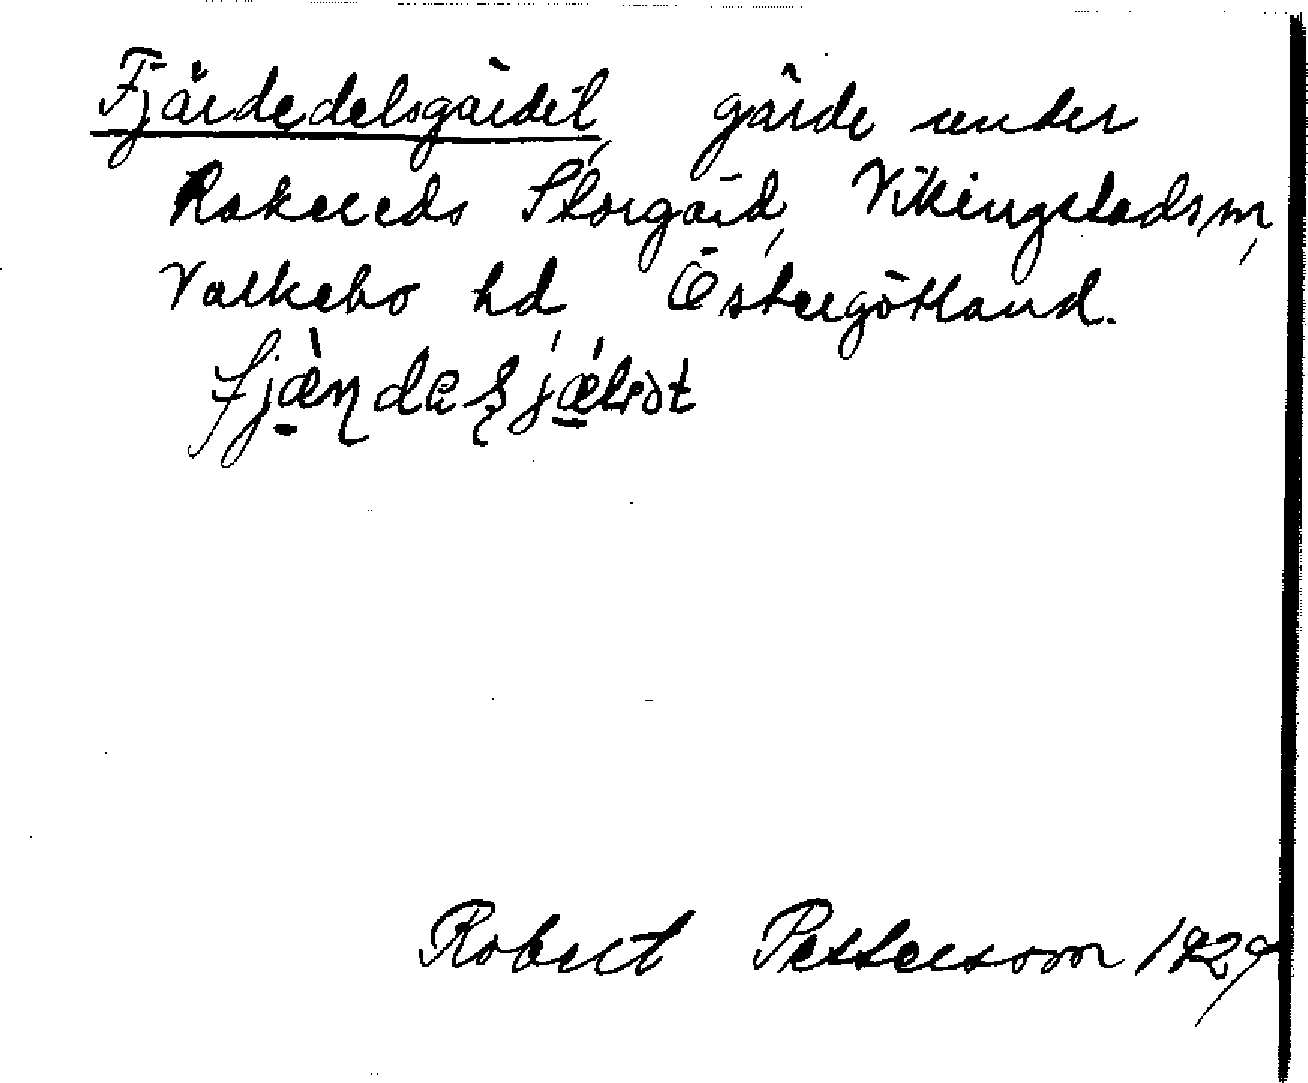 Fjärdedelsgärdet, gärde under
Rakereds Storgård, Vikingstads sn,
Valkebo hd, Östergötland.
Robert Pettersson 1929